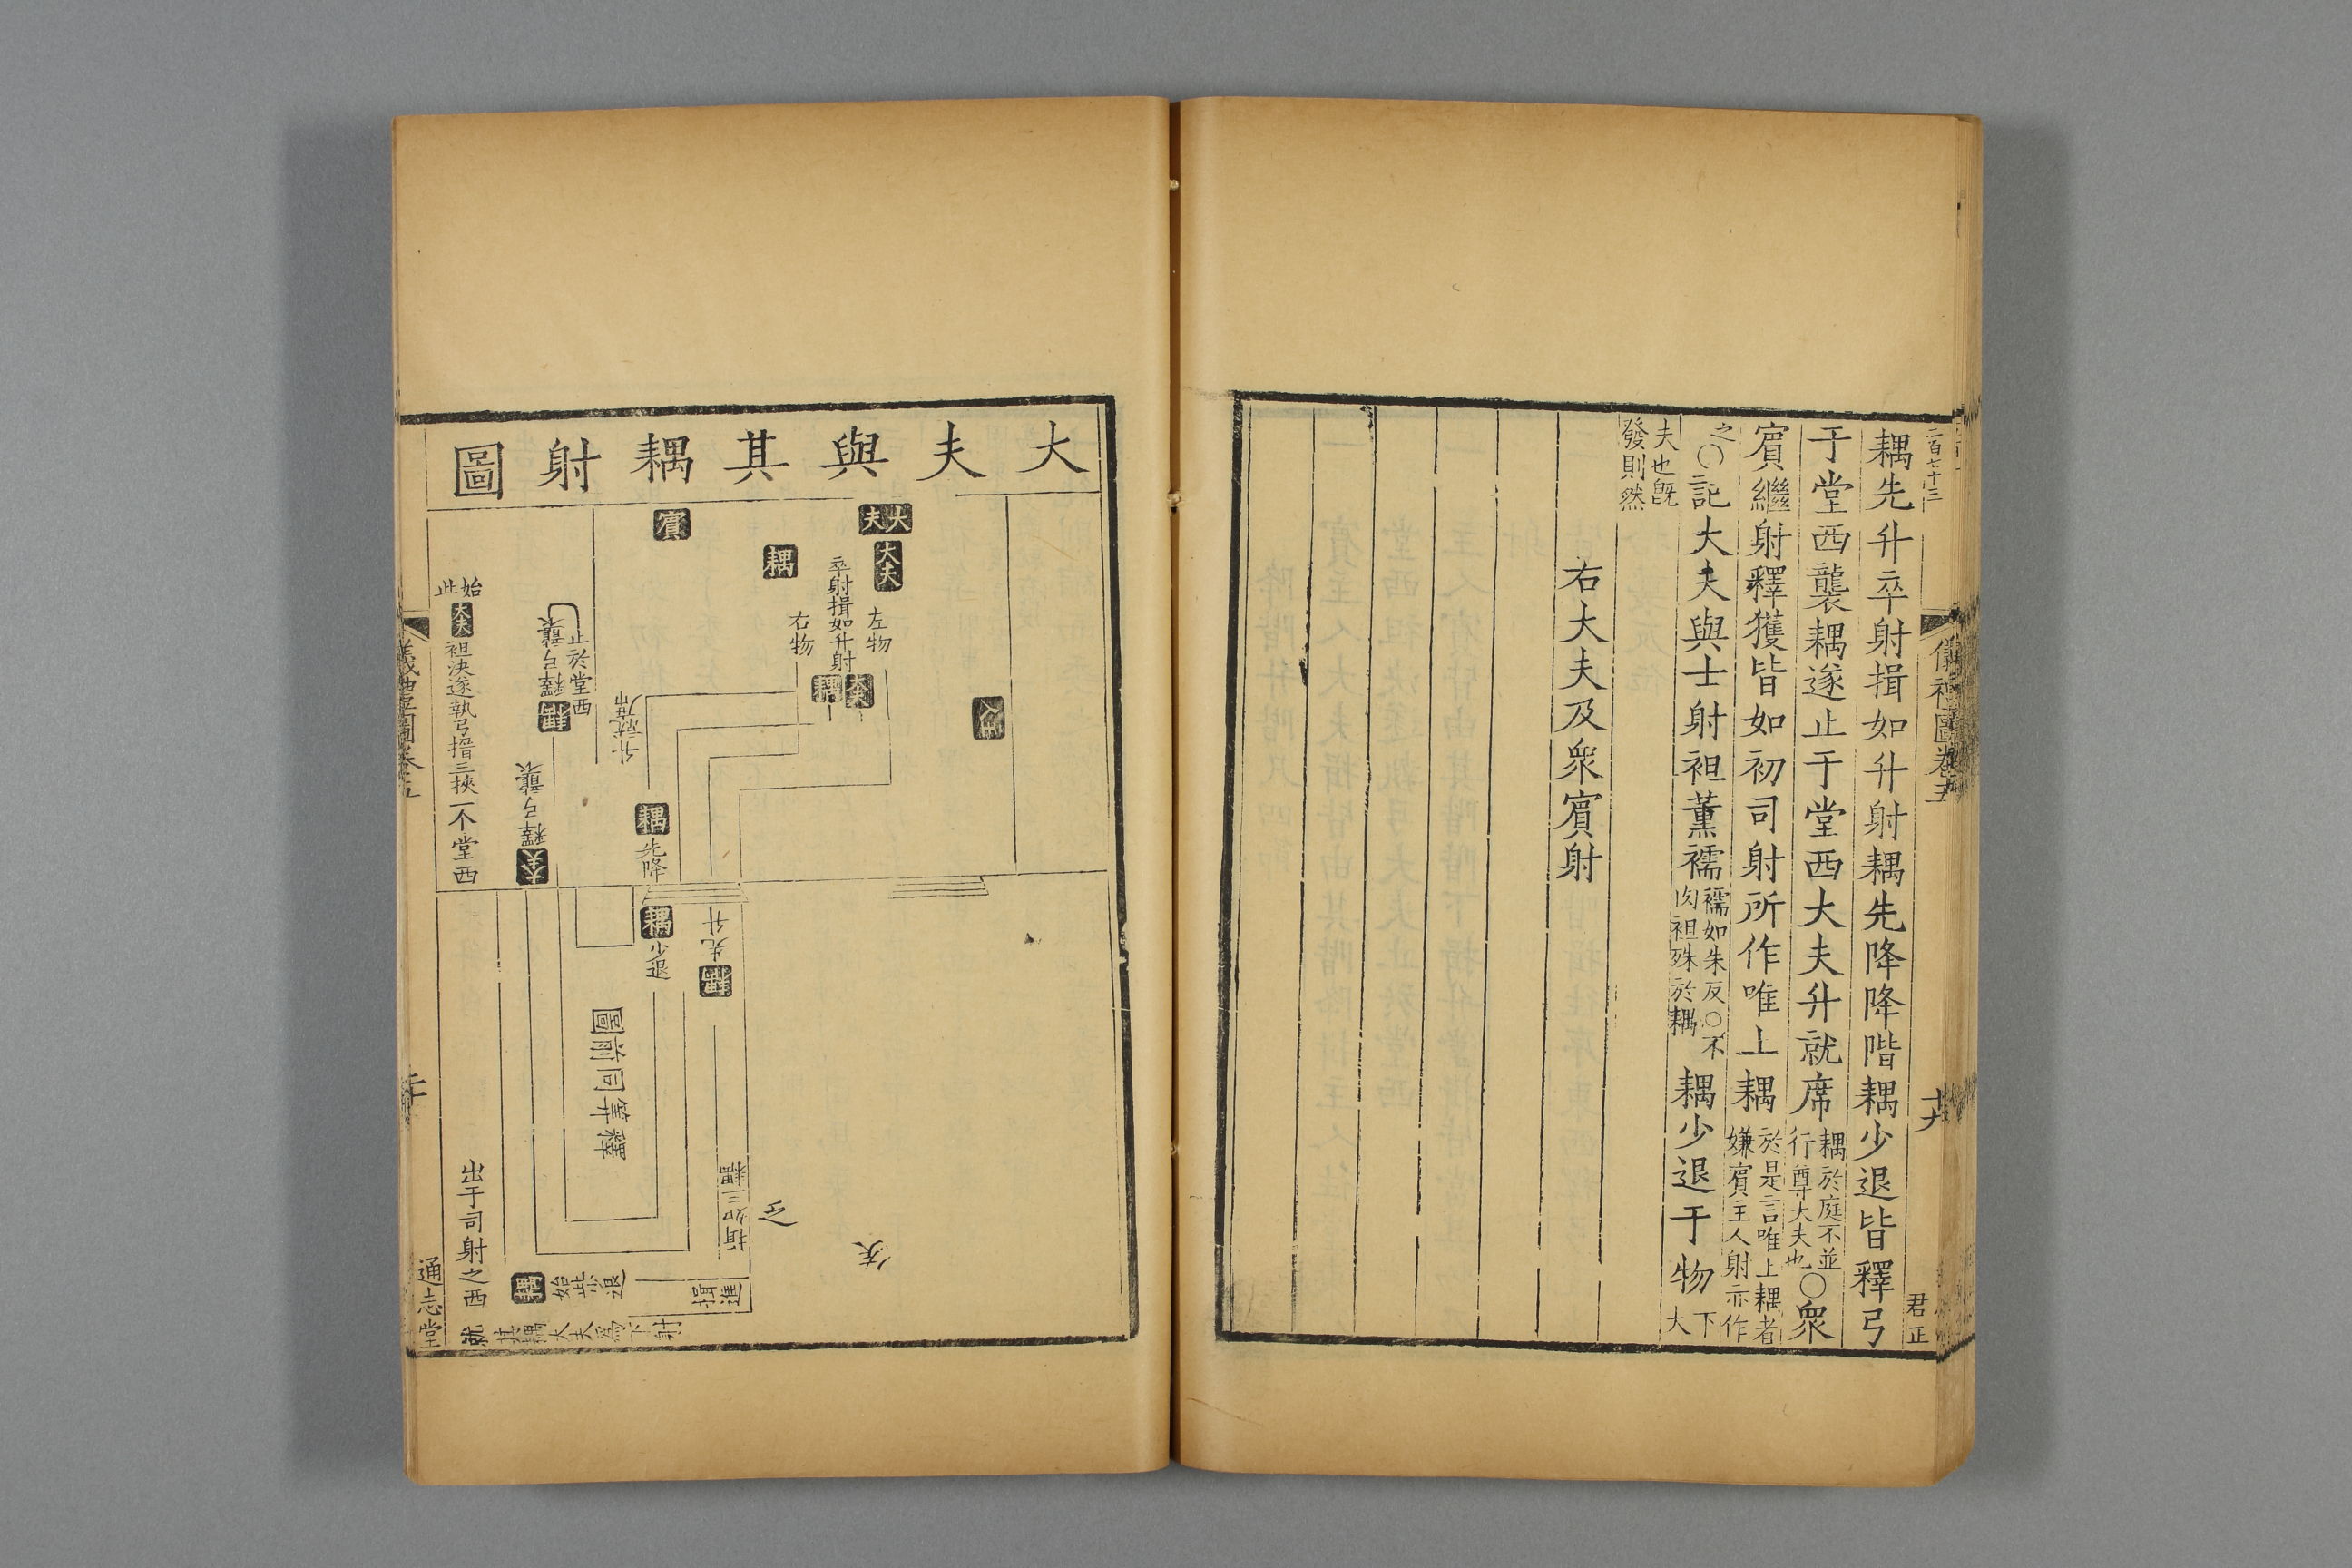 二百七十三
儀禮圖卷五
十九
君正
耦先升卒射揖如升射耦先降降階耦少退皆釋弓
于堂西襲耦遂止于堂西大夫升就席耦於庭不並行尊大夫也○衆
賔繼射釋獲皆如初司射所作唯上耦於是言唯上耦者嫌賔主人射亦作
之○記大夫與士射袒薫襦襦如朱反○不肉袒殊於耦耦少退于物下大
夫也旣發則然
右大夫及衆賔射
大夫與其耦射圖
賔
大夫
大夫
耦
卒射揖如升射
左物
右物
大夫
耦
主人
升就席
止於堂西
耦釋弓襲
大夫釋弓襲
始此
大夫
袒決遂執弓搢三挾一个堂西
耦先降
耦少退
耦先升
釋筭同前圖
揖如三耦
乏
侯
出于司射之西
就其耦大夫爲下射
耦始此
退
揖進
儀禮圖卷五
二十
通志堂